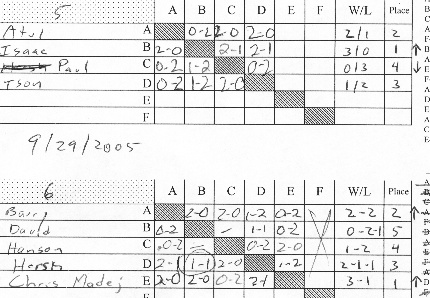 5 A B C D E F W/L Place
Atul A 0-2 2-0 2-0 2/1 2
Isaac B 2-0 2-1 2-1 3/0 1
Paul C 0-2 1-2 0-2 0/3 4
Tson D 0-2 1-2 2-0 1/2 3
E
F
9/29/2005
6 A B C D E F W/L Place
Barry A 2-0 2-0 1-2 0-2 2-2 2
David B 0-2 - 1-1 0-2 0-2-1 5
Hanson C 0-2 0-2 2-0 1-2 4
Hersh D 2-1 1-1 2-0 1-2 2-1-1 3
Chris Madej E 2-0 2-0 0-2 2-1 3-1 1
F